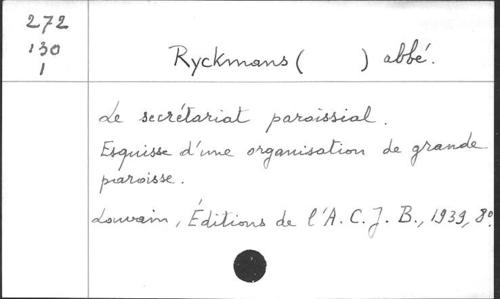 272
130
1
Ryckmans ( ) abbé.
Le secrétariat paroissial.
Esquisse d'une organisation de grande
paroisse.
Louvain, Éditions de l'A. C. J. B., 1939, 8º.